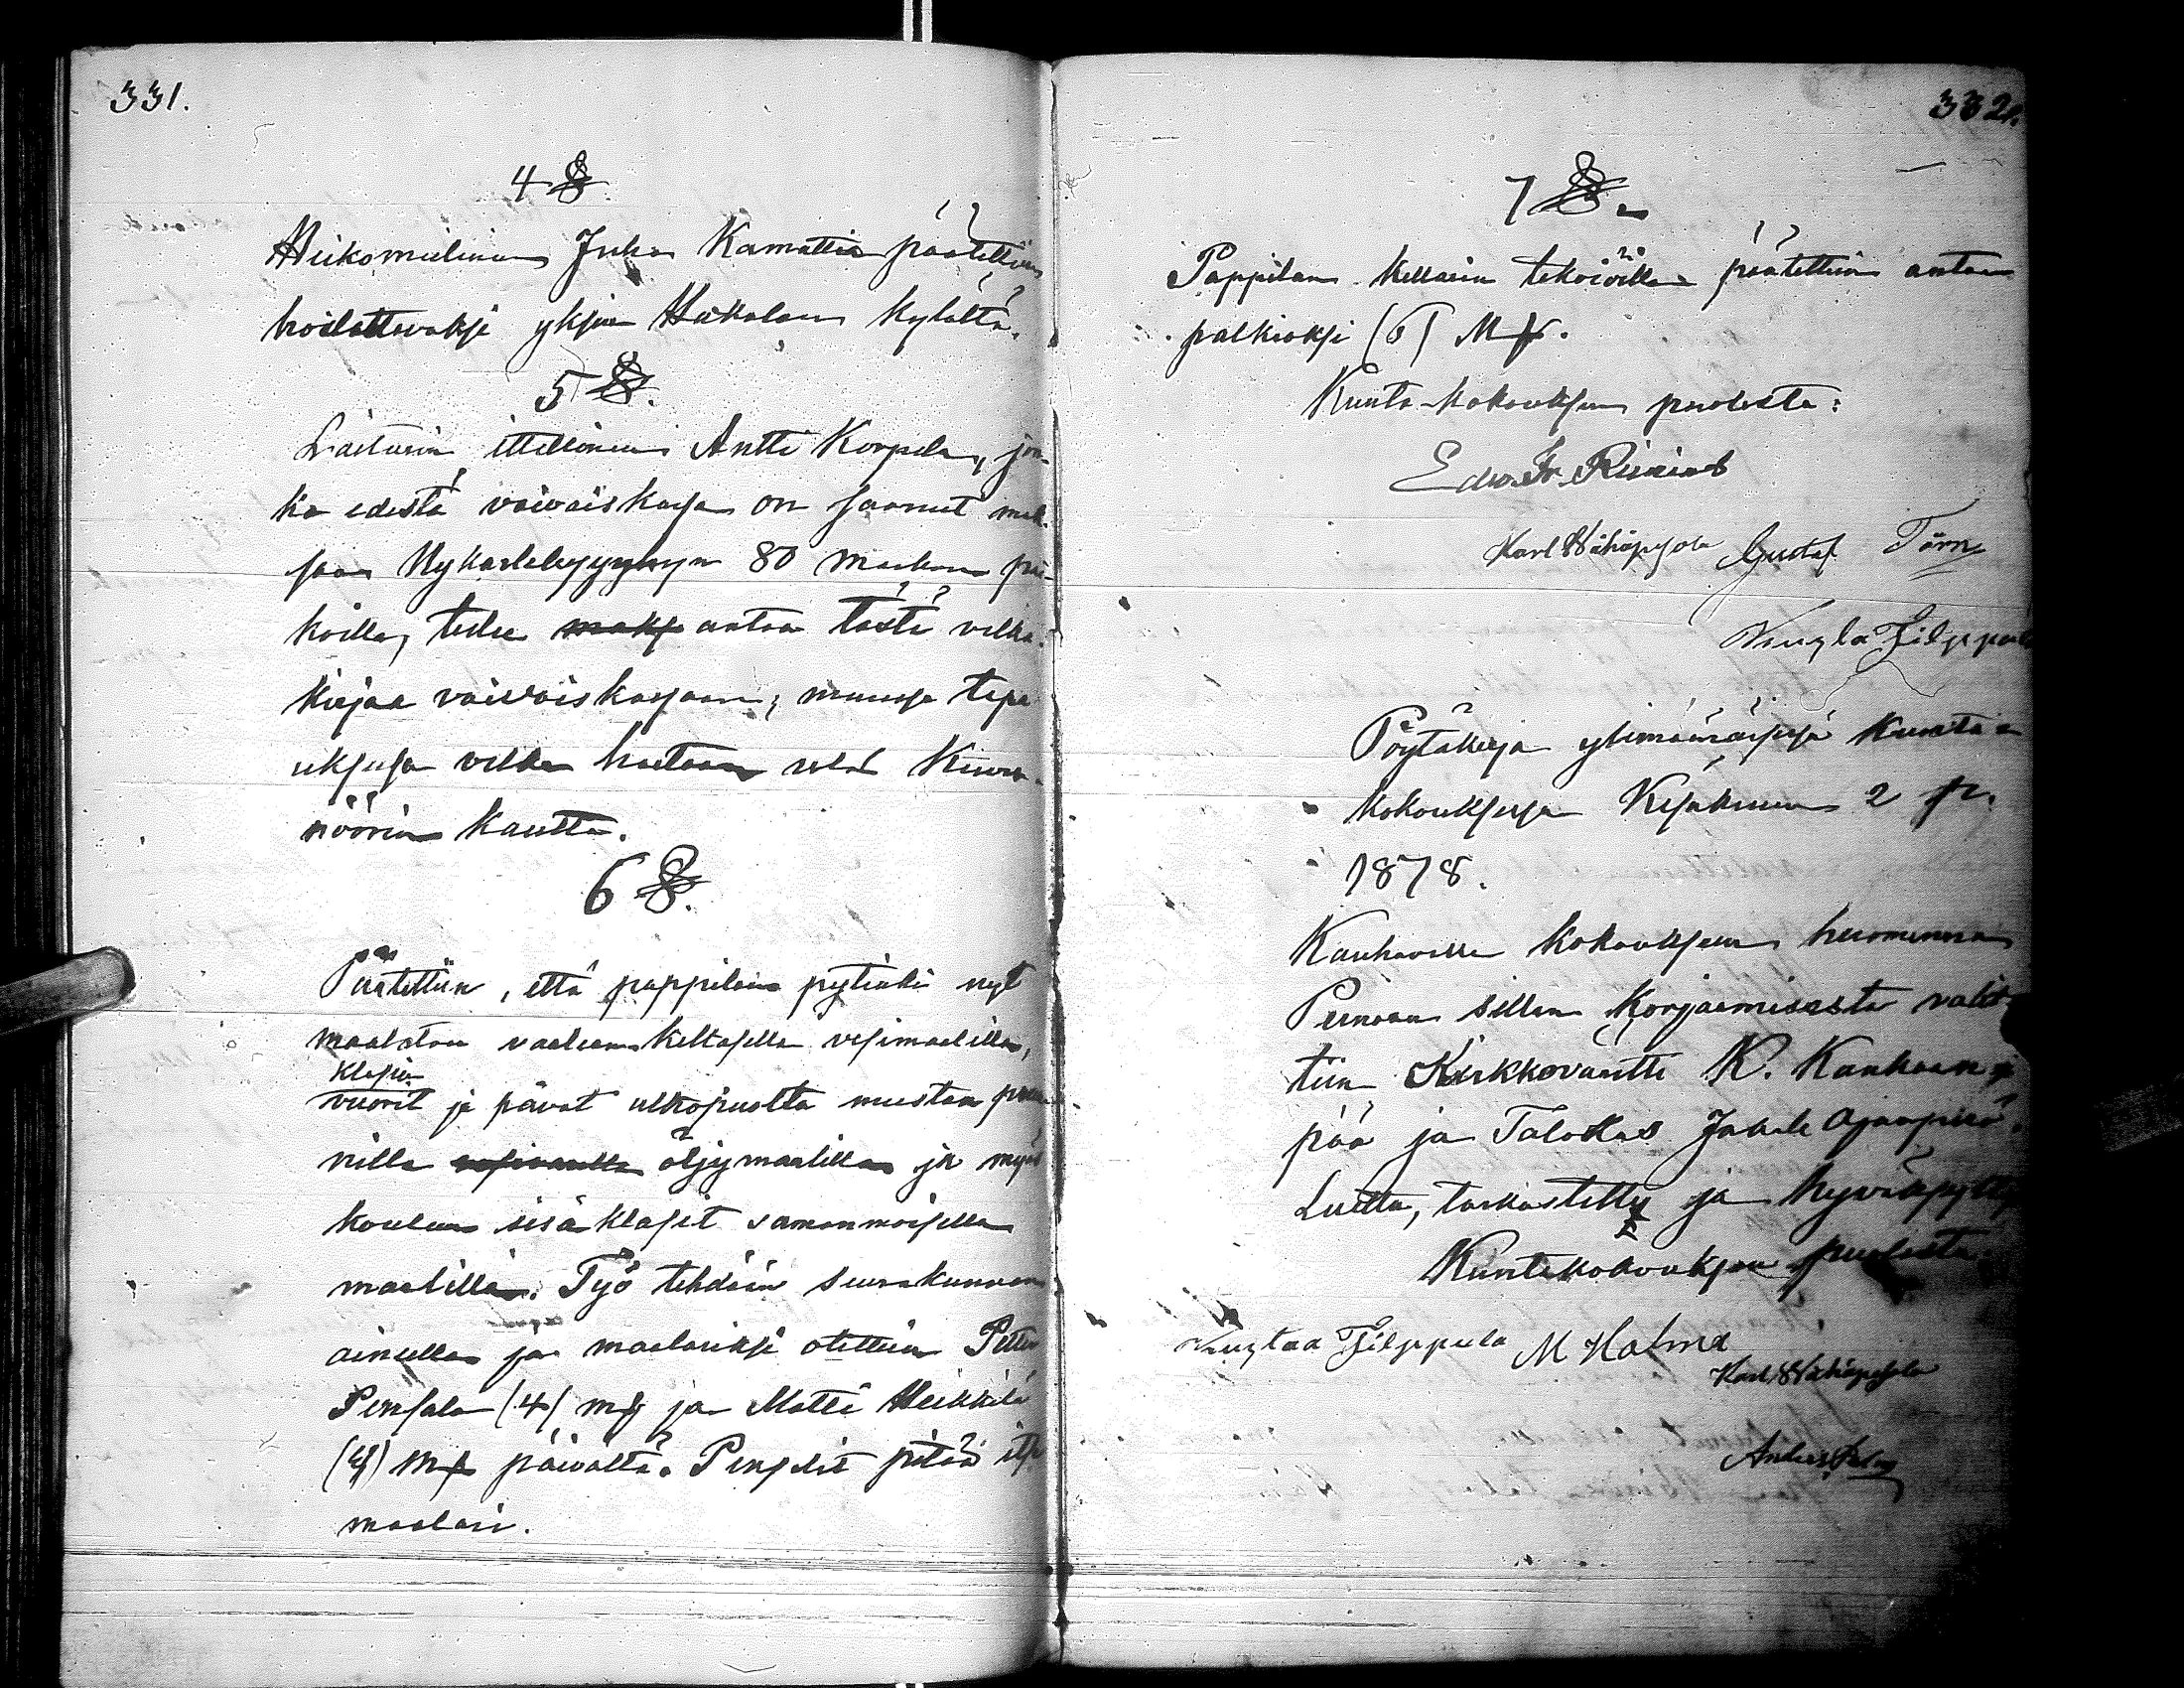 331.
4 §.
Heikomielinen Juha Kamattia päätettiin
hoidettavaksi yksin Hukalan kylältä.
5 §.
Laiturin ittellinen Antti Korpela, jon-
ka edestä vaivaiskassa on saanut mak-
saa Nykarlebyyhyn 80 markan pai-
koilla, tulee maks antaa tästä velka-
kirjaa vaivaiskassaan; muussa tapa
uksessa velka haetaan ulos Kuver-
nöörin kautta.
6 §.
Päätettiin, että pappilan pytinki nyt
maalataan vaalean keltasella vesimaalilla,
klasin
vuorit ja pävat ulkopuolta mustan pru-
nilla öljymaalilla ja myös
koulun sisäklasit samanmoisella
maalilla. Työ tehdään seurakunnan
aineilla ja maalariksi otettiin Petter
Pensala (4) mk ja Matti Heikkilä
(4) mk päivältä. Penselit pitää itse
maalari.
332.
7 §.
Pappilan kellarin tekiöille päätettiin antaa
palkioksi (6) Mk.
Kunta-kokouksen puolesta:
Karl Wähäpesola Gustaf Törn
Kustaa Filppula
Pöytäkirja ylimääräisessä Kunta-
kokouksessa Kesäkuun 2 p.
1878.
Kauhavilla kokouksen huomennan
Pernaan sillan korjaamisesta valit-
tiin Kirkkoväärtti K. Kauhaan-
pää ja Talokas Jakob Ajanpää.
Luettu, tarkastettu ja hyväksytty
Kuntakokouksen puolesta
Kustaa Filppula M Halma
Karl Wähäpesola